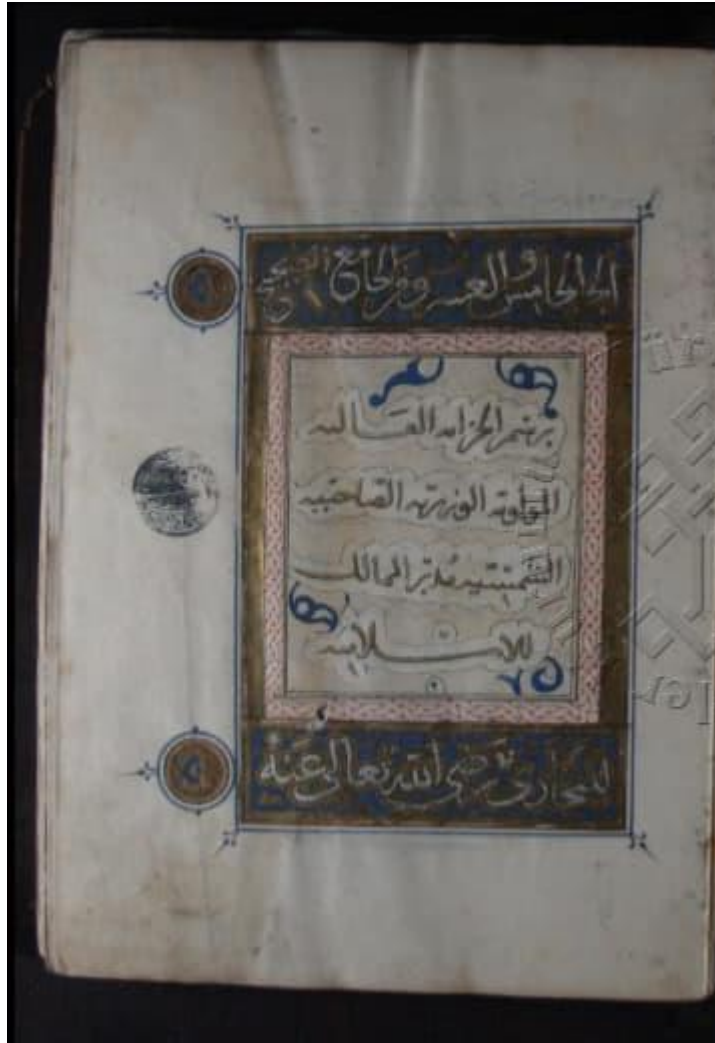 الجزء الخامس والعشرون من الجامع الصحيح
برسم الخزانة العالية
المولوية الوزيرية الصاحبية
الشمسية مدبر الممالك
الاسلامية
للبخاري رضي الله تعالى عنه